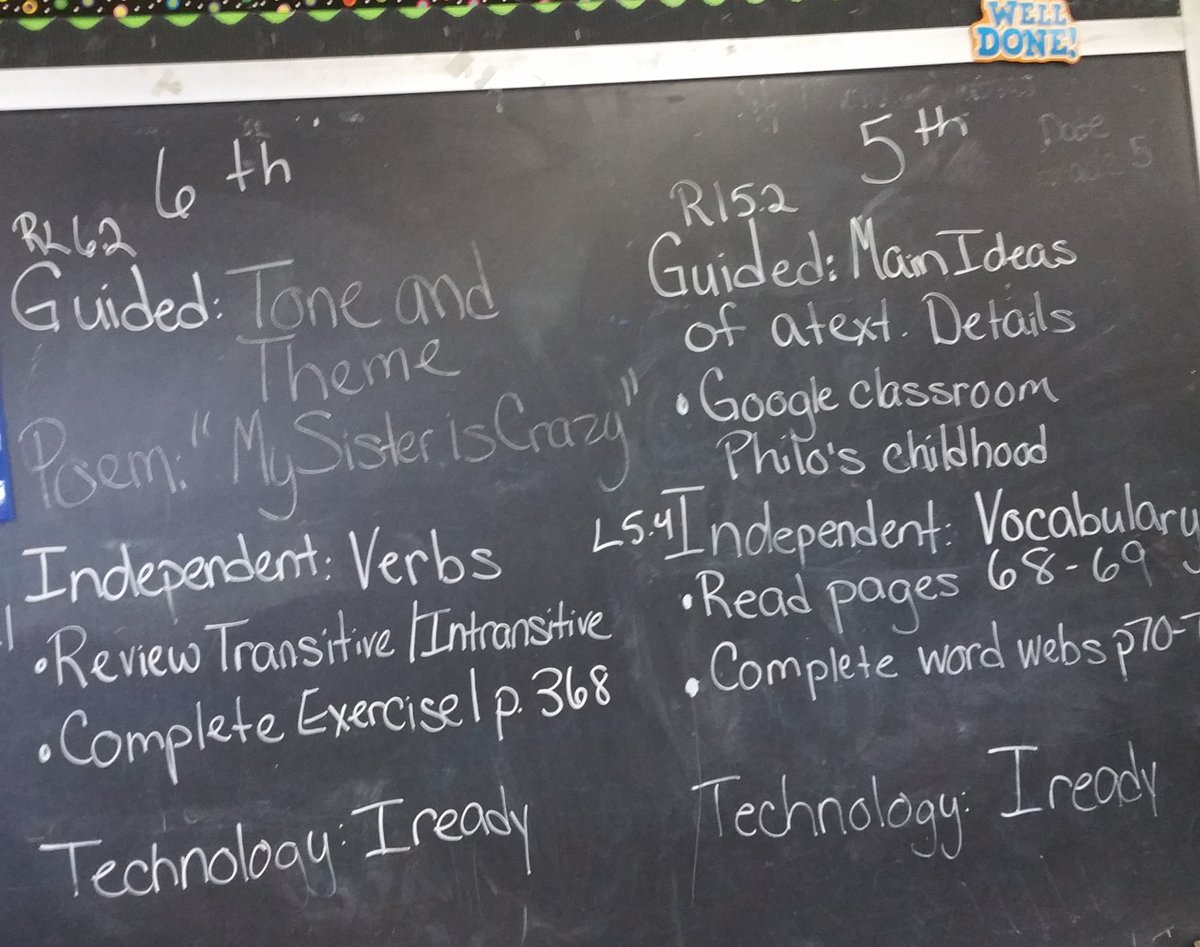 WELL
DONE!
6th
RL6.2
Guided: Tone and
Theme
Poem: "My Sister is Crazy"
Independent: Verbs
• Review Transitive/Intransitive
• Complete Exercise 1 p. 368
Technology: Iready
5th
RI5.2
Guided: Main Ideas
of a text. Details
• Google classroom
Philo's childhood
L5.4 Independent: Vocabulary
• Read pages 68-69
• Complete word webs p70-7
Technology: Iready